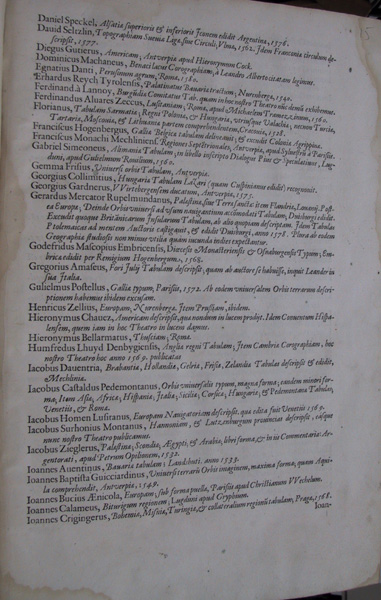 Daniel Speckel, Alsatia superioris & inferioris Iconem edidit Argentinæ, 1576.
Dauid Seltzlin, Topographiam Sueuia Ligæ siue Circuli, Vlmæ, 1562. Idem Franconia circulum de-
scripsit, 1577.
Diegus Gutierus, Americam, Antverpiæ apud Hieronymum Cock.
Dominicus Machaneus, Benaci lacus Corographiam, à Leandro Alberto citatam legimus.
Egnatius Danti, Perusinum agrum, Romæ, 1580.
Erhardus Reych Tyrolensis, Palatinatus Bauariæ tractum; Nurenbergæ, 1540.
Ferdinand. à Lannoy, Burgundiæ Comitatus Tab. quam in hoc nostro Theatro illic denuò exhibemus.
Ferdinandus Aluares Zeccus, Lusitaniam, Romæ, apud Michaelem Tramezinum, 1560.
Florianus, Tabulam Sarmatiæ, Regna Poloniæ, & Hungariæ, vtriusque Valachiæ, necnon Turciæ,
Tartariæ, Moscouiæ, & Lithuaniæ partem comprehendentem, Cracouiæ, 1528.
Franciscus Hogenbergus, Gallia Belgica tabulam delineauit; & excudit Coloniæ Agrippinæ.
Franciscus Monachi Mechlinienf. Regiones Septentrionales, Antverpiæ, apud Syluestrum à Parisiis.
Gabriel Simeoneus, Alimania Tabulam, in libello inscripto Dialogo Pio & Speculatiuo, Lug-
duni, apud Gulielmum Rouilium, 1560.
Gemma Frisius, Vniuersi orbis Tabulam, Antverpiæ.
Georgius Collimitius, Hungaria Tabulam Lazari (quam Cuspinianus edidit) recognouit.
Georgius Gardnerus, Wirtebergensem ducatum, Antverpiæ, 1575.
Gerardus Mercator Rupelmundanus, Palæstinæ, siue Terræ sanctæ: item Flandriæ, Louanij. Post-
ea Europæ, Deinde Orbis vniuersi ad vsum nauigantium accomodati Tabulas, Duisburgi edidit.
Excudit quoque Britannicarum Insularum Tabulam, ab alio quopiam descriptam. Idem Tabulas
Ptolemaicas ad mentem Auctoris castigauit, & edidit Duisburgi, anno 1578. Plura ab eodem
Geographiæ studiosis non minus vtilia quàm iucunda indies expectantur.
Godefridus Mascopius Embricensis, Diœcesis Monasteriensis & Osnaburgensis Typum, Em-
bricæ edidit per Remigium Hogenbergum, 1568.
Gregorius Amaseus, Fori Julij Tabulam descripsit, quam ab auctore se habuisse, inquit Leander in
sua Italia.
Gulielmus Postellus, Gallia typum, Parisiis, 1572. Ab eodem vniuersalem Orbis terrarum descri-
ptionem habemus ibidem excusam.
Henricus Zellius, Europam, Nurenbergæ. Item Prussiam, ibidem.
Hieronymus Chauez, Americam descripsit, qua nondum in lucem prodyt. Idem Conuentum Hispa-
lensem, quem iam in hoc Theatro in lucem damus.
Hieronymus Bellarmatus, Thusciam; Romæ.
Humfredus Lhuyd Denbygiensis, Angliæ regni Tabulam; Item Cambriæ Corographiam, hoc
nostro Theatro hoc anno 1569. publicatas
Iacobus Dauentria, Brabantiæ, Hollandiæ, Gelriæ, Frisiæ, Zelandiæ Tabulas descripsit & edidit,
Mechliniæ.
Iacobus Castaldus Pedemontanus, Orbis vniuersalis typum, magna forma; eandem minori for-
ma, Item Asiæ, Africæ, Hispaniæ, Italiæ, Siciliæ, Corsicæ, Hungariæ, & Pedemontana Tabulas,
Venetiis, & Romæ.
Iacobus Homen Lusitanus, Europam Nauigatoriam descripsit, qua edita fuit Venetiis 1569.
Iacobus Surhonius Montanus, Hannoniam, & Lutzenburgum prouincias descripsit, easque
nunc nostro Theatro publicamus.
Iacobus Zieglerus, Palæstinæ, Scandiæ, Ægypti, & Arabiæ, libri forma, & in iis Commentaria Ar-
gentorati, apud Petrum Opilionem, 1532.
Ioannes Auentinus, Bauaria tabulam; Landshuti. anno 1533.
Ioannes Baptista Guicciardinus, Vniuersi terrarū Orbis imaginem, maxima forma, quam Aqui-
la comprehendit, Antverpiæ, 1549.
Ioannes Bucius Ænicola, Europam, sub forma puellæ, Parisiis apud Christianum Wechelum.
Ioannes Calameus, Biturigum regionem; Lugduni apud Gryphium.
Ioannes Crigingerus, Bohemiæ, Misniæ, Turingiæ, & collateralium regionū tabulam; Pragæ, 1568.
Ioan-